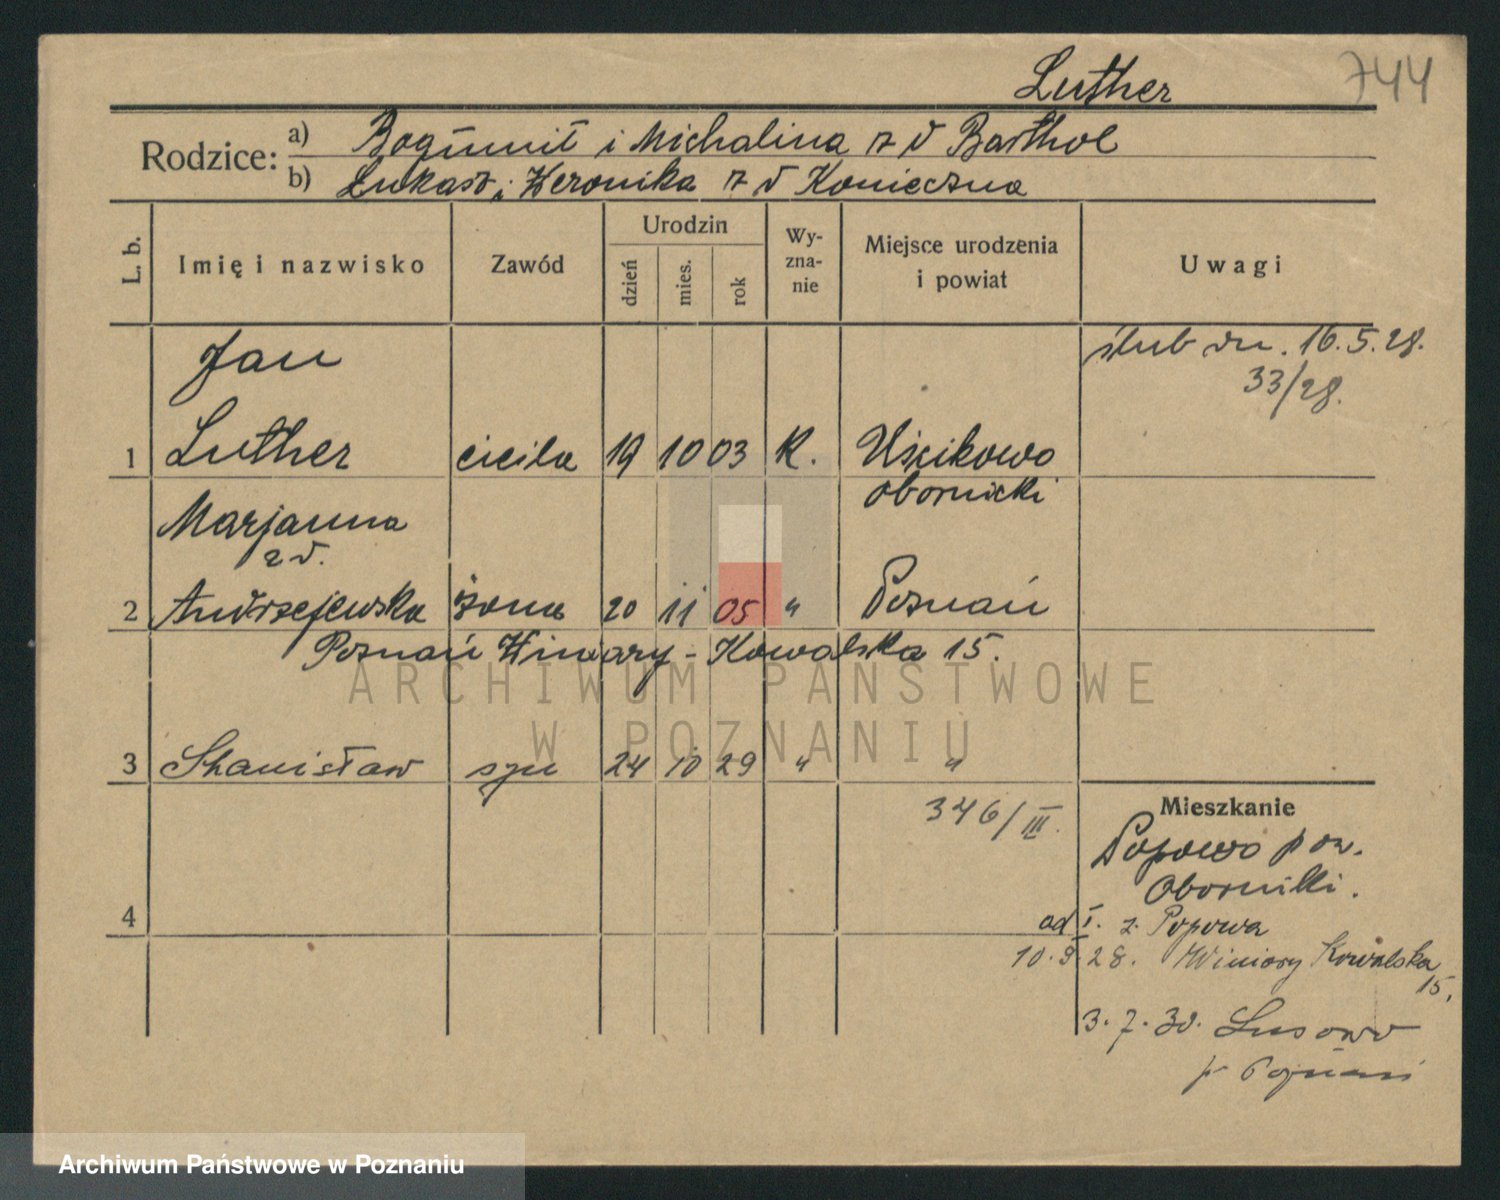 Luther 744
Rodzice: a) Bogumił i Michalina z d Barthol
b) Łukasz i Weronika z d Konieczna
L. b. Imię i nazwisko Zawód Urodzin dzień mies. rok Wy-zna-nie Miejsce urodzenia i powiat Uwagi
Jan ślub dn. 16.5.28.
33/28.
1 Luther cieśla 19 10 03 K. Uścikowo
obornicki
Marjanna
z d.
2 Andrzejewska żona 20 11 05 " Poznań
Poznań Winiary - Kowalska 15.
ARCHIWUM PAŃSTWOWE
W POZNANIU
3 Stanisław syn 24 10 29 " "
346/III. Mieszkanie
Popowo pow.
Oborniki.
4 od I. z Popowa
10.9.28. Winiary Kowalska
15,
3.7.30. Lusowo
p Poznań
Archiwum Państwowe w Poznaniu